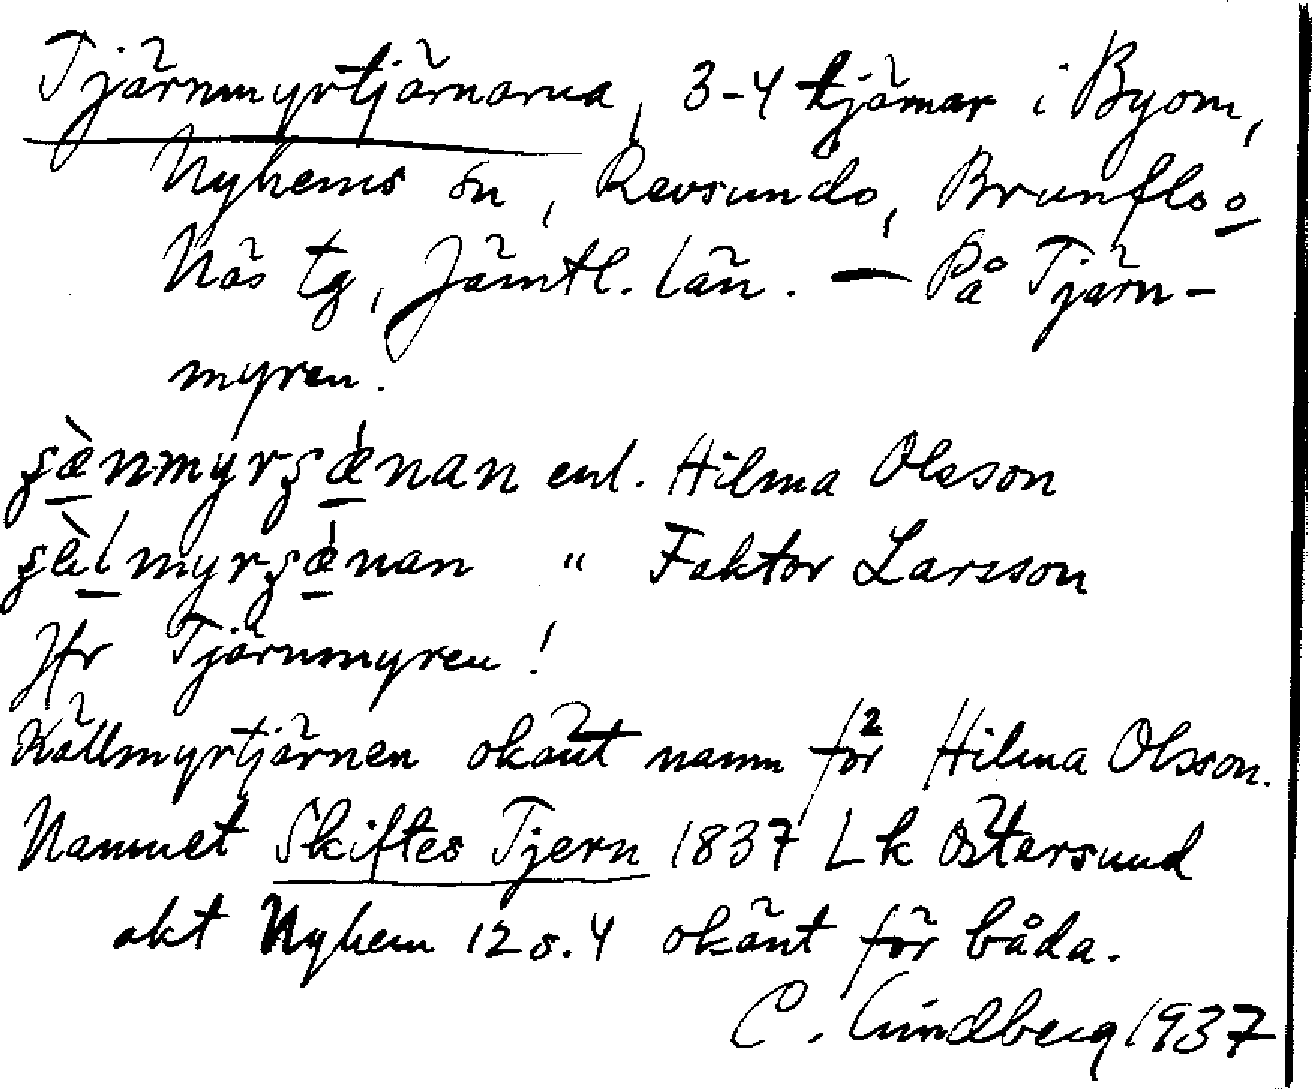 Tjärnmyrtjärnarna, 3-4 tjärnar i Byom,
Nyhems sn, Revsunds, Brunflo o
Näs tg, Jämtl. län. — På Tjärn-
myren.
ʂæ̀nmyrʂænan enl. Hilma Olsson
ʂèlmyrʂænan " Faktor Larsson
Jfr Tjärnmyren!
Källmyrtjärnen okänt namn för Hilma Olsson.
Namnet Skiftes Tjern 1837 Lk Östersund
akt Nyhem 12 s. 4 okänt för båda.
C. Lindberg 1937